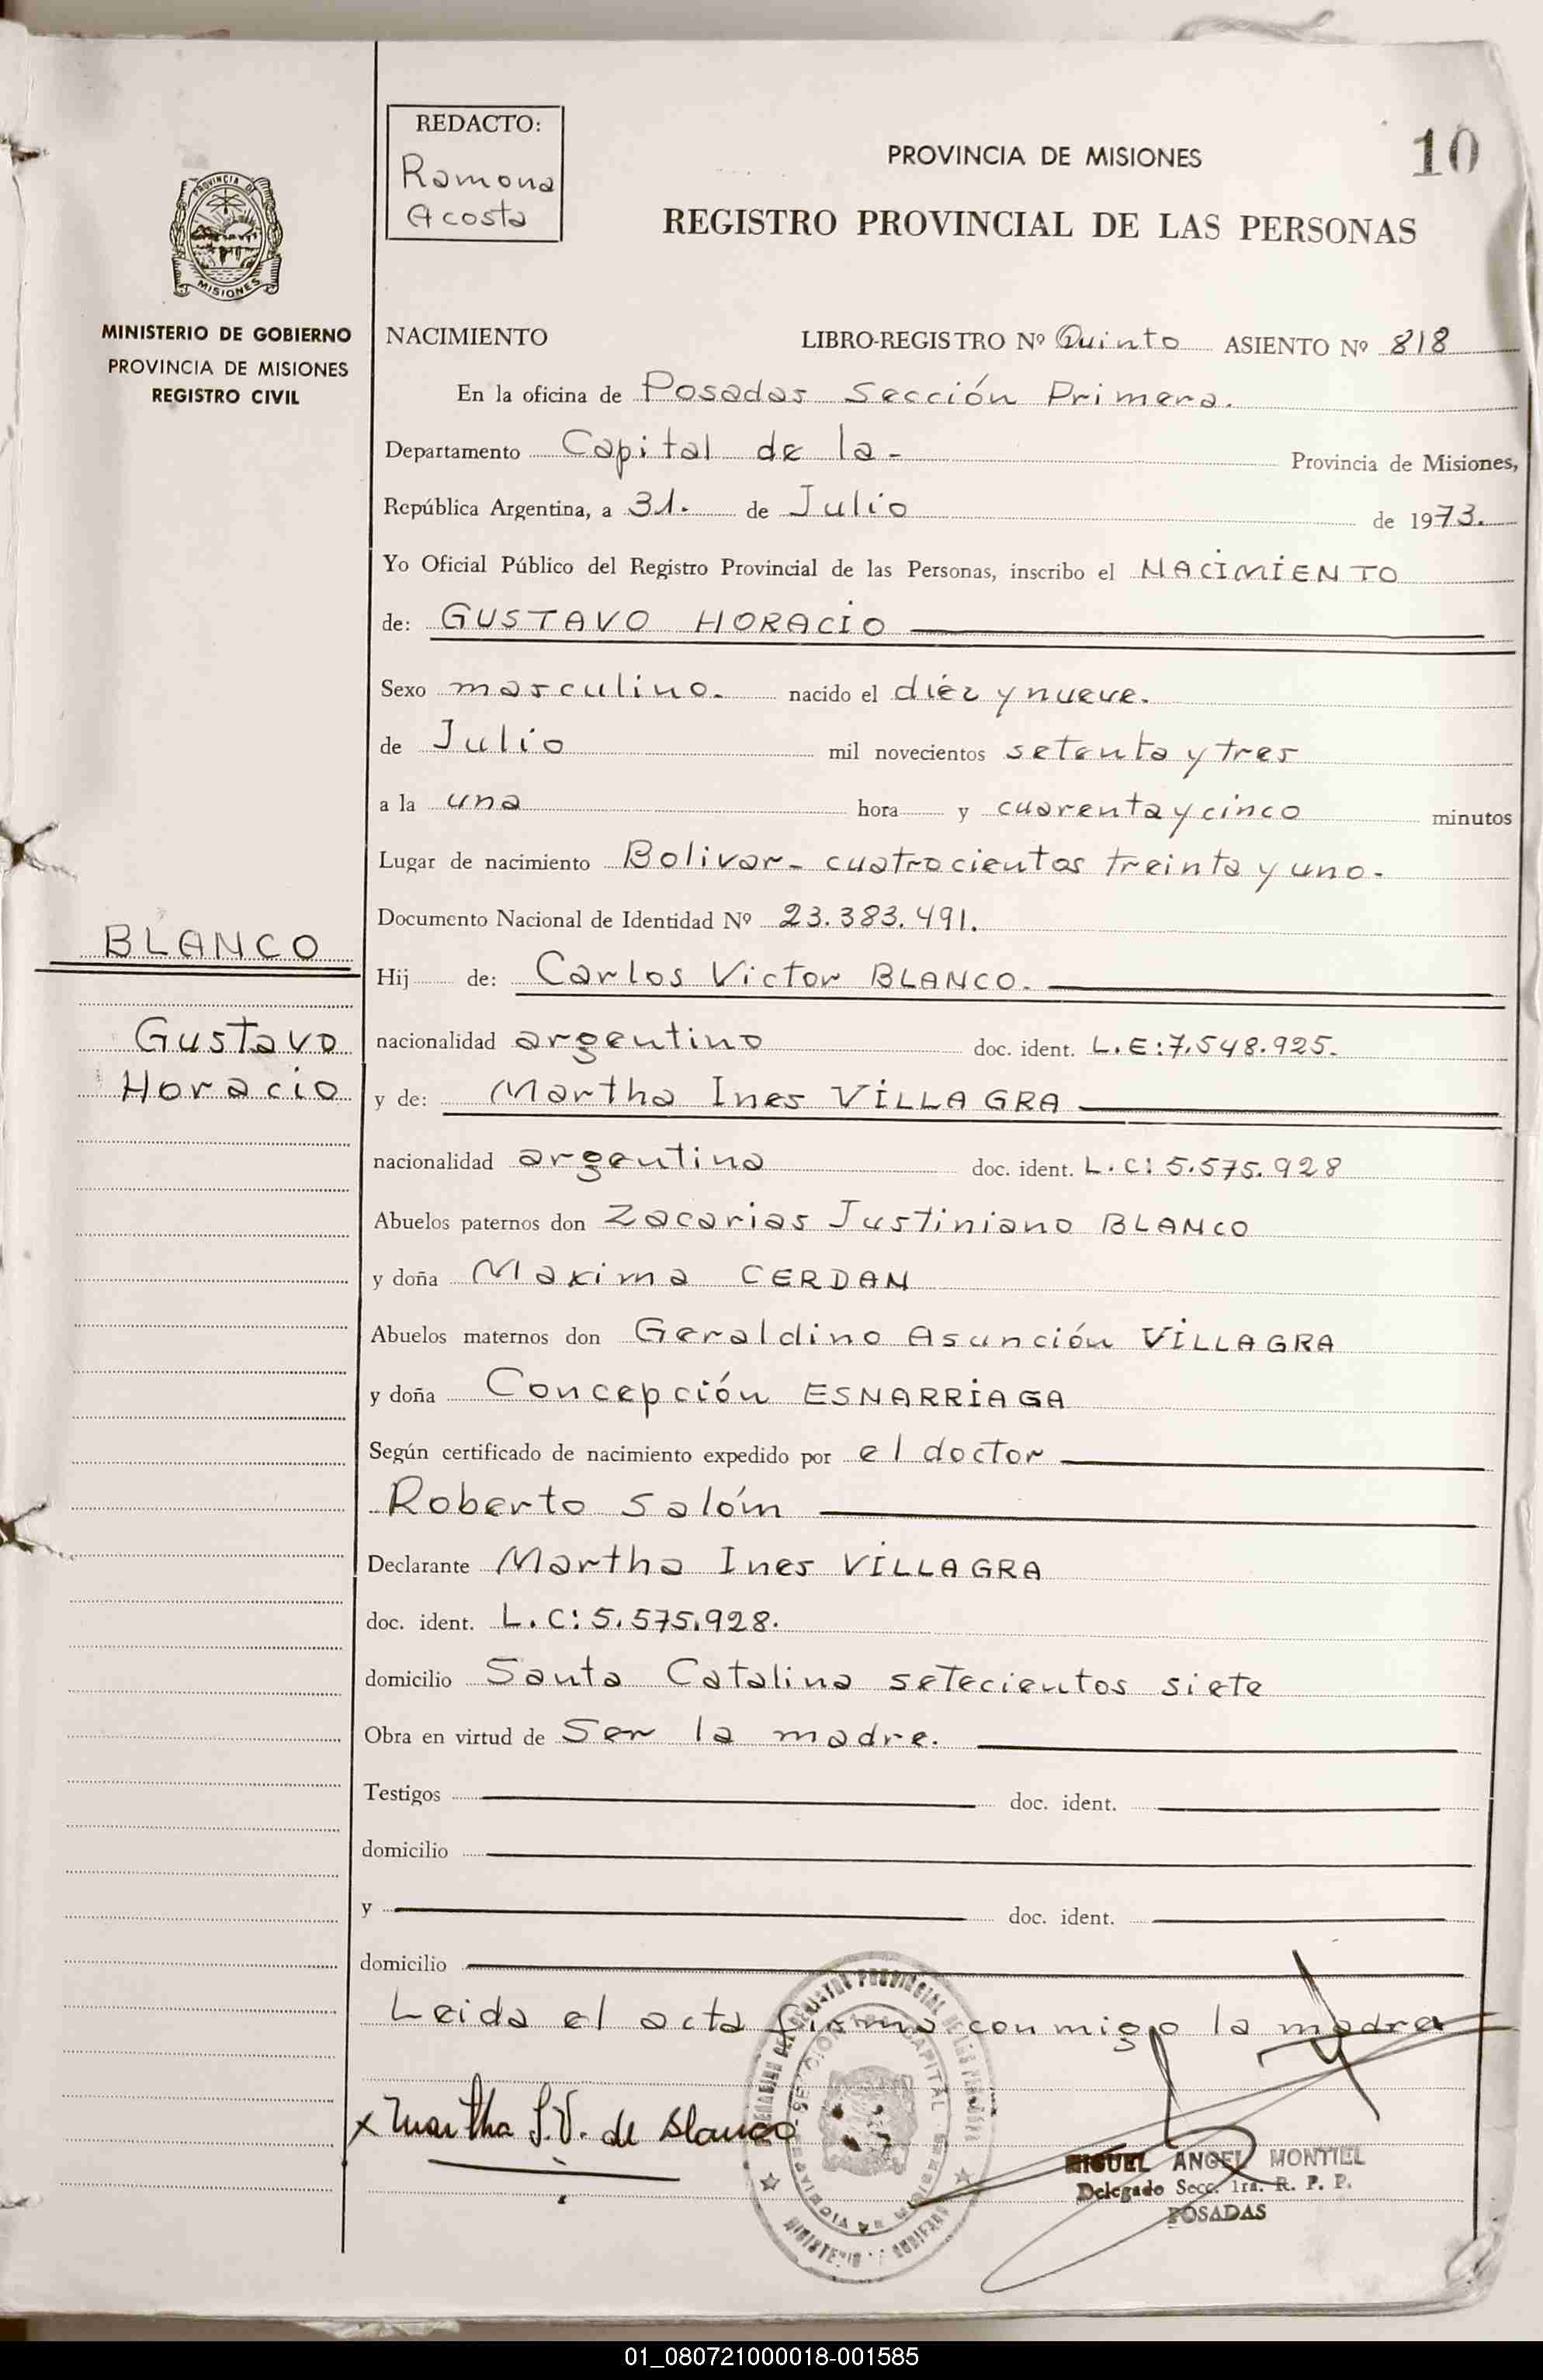 REDACTO:
Ramona
Acosta
PROVINCIA DE MISIONES
10
REGISTRO PROVINCIAL DE LAS PERSONAS
PROVINCIA DE
MISIONES
MINISTERIO DE GOBIERNO
PROVINCIA DE MISIONES
REGISTRO CIVIL
NACIMIENTO LIBRO-REGISTRO Nº Quinto ASIENTO Nº 818
En la oficina de Posadas Sección Primera.
Departamento Capital de la - Provincia de Misiones,
República Argentina, a 31. de Julio de 1973.
Yo Oficial Público del Registro Provincial de las Personas, inscribo el NACIMIENTO
de: GUSTAVO HORACIO
Sexo masculino. nacido el diez y nueve.
de Julio mil novecientos setenta y tres
a la una hora y cuarenta y cinco minutos
Lugar de nacimiento Bolivar - cuatrocientos treinta y uno.
Documento Nacional de Identidad Nº 23.383.491.
BLANCO
Gustavo
Horacio
Hij de: Carlos Victor BLANCO.
nacionalidad argentino doc. ident. L.E:7.548.925.
y de: Martha Ines VILLAGRA
nacionalidad argentina doc. ident. L.C: 5.575.928
Abuelos paternos don Zacarias Justiniano BLANCO
y doña Maxima CERDAN
Abuelos maternos don Geraldino Asunción VILLAGRA
y doña Concepción ESNARRIAGA
Según certificado de nacimiento expedido por el doctor
Roberto Salóm
Declarante Martha Ines VILLAGRA
doc. ident. L.C: 5.575.928.
domicilio Santa Catalina setecientos siete
Obra en virtud de Ser la madre.
Testigos doc. ident.
domicilio
y doc. ident.
domicilio
Leida el acta firma conmigo la madre
x Martha I.V. de Blanco
MIGUEL ANGEL MONTIEL
Delegado Secc. 1ra. R. P. P.
POSADAS
01_080721000018-001585